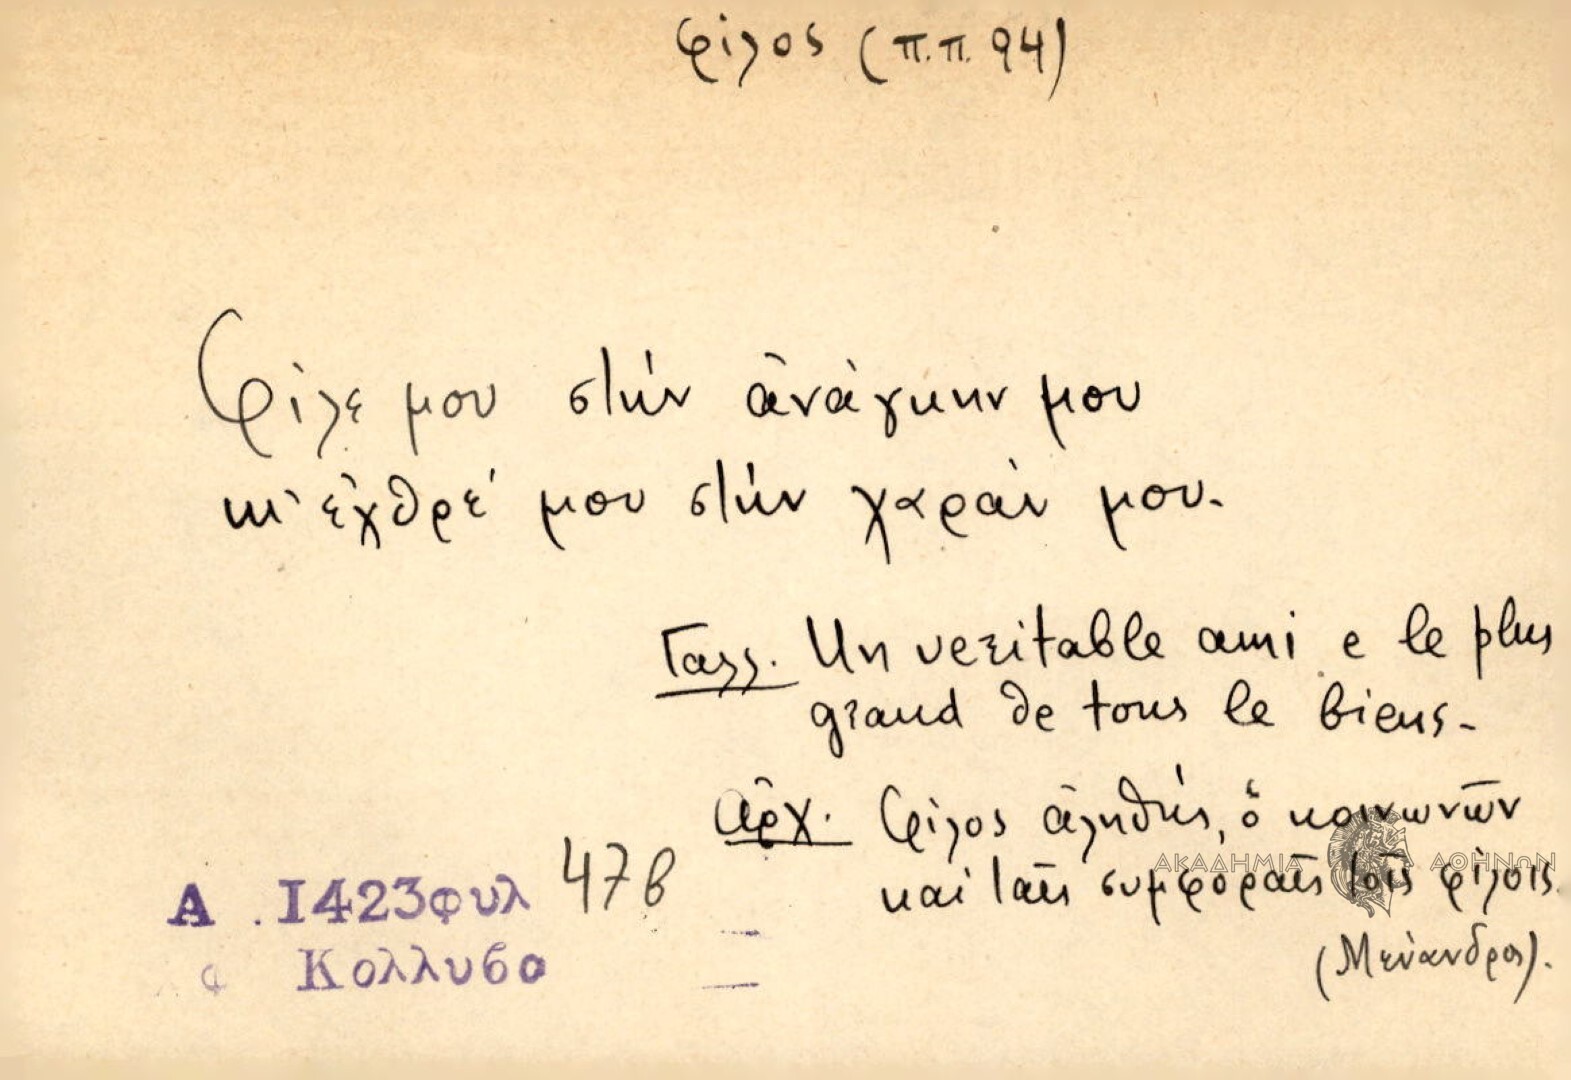 φίλος (π.π. 94)
Φίλε μου στήν ἀνάγκην μου
κι' ἐχθρέ μου στήν χαράν μου.
Γαλλ. Un veritable ami e le plus
grand de tous le biens.
Ἀρχ. Φίλος ἀληθής, ὁ κοινωνῶν
ΑΚΑΔΗΜΙΑ ΑΘΗΝΩΝ
καί ταῖς συμφόραῖς τοῖς φίλοις.
(Μένανδρος).
Α. 1423φυλ 47β
Κολλυβα